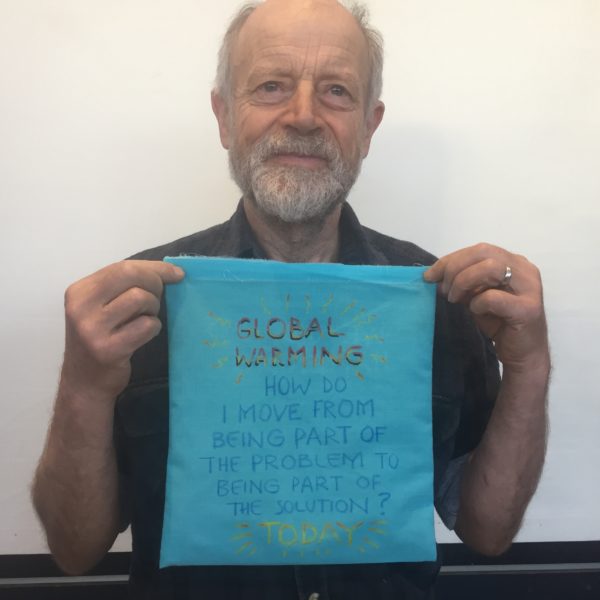 GLOBAL
WARMING
HOW DO
I MOVE FROM
BEING PART OF
THE PROBLEM TO
BEING PART OF
THE SOLUTION?
TODAY